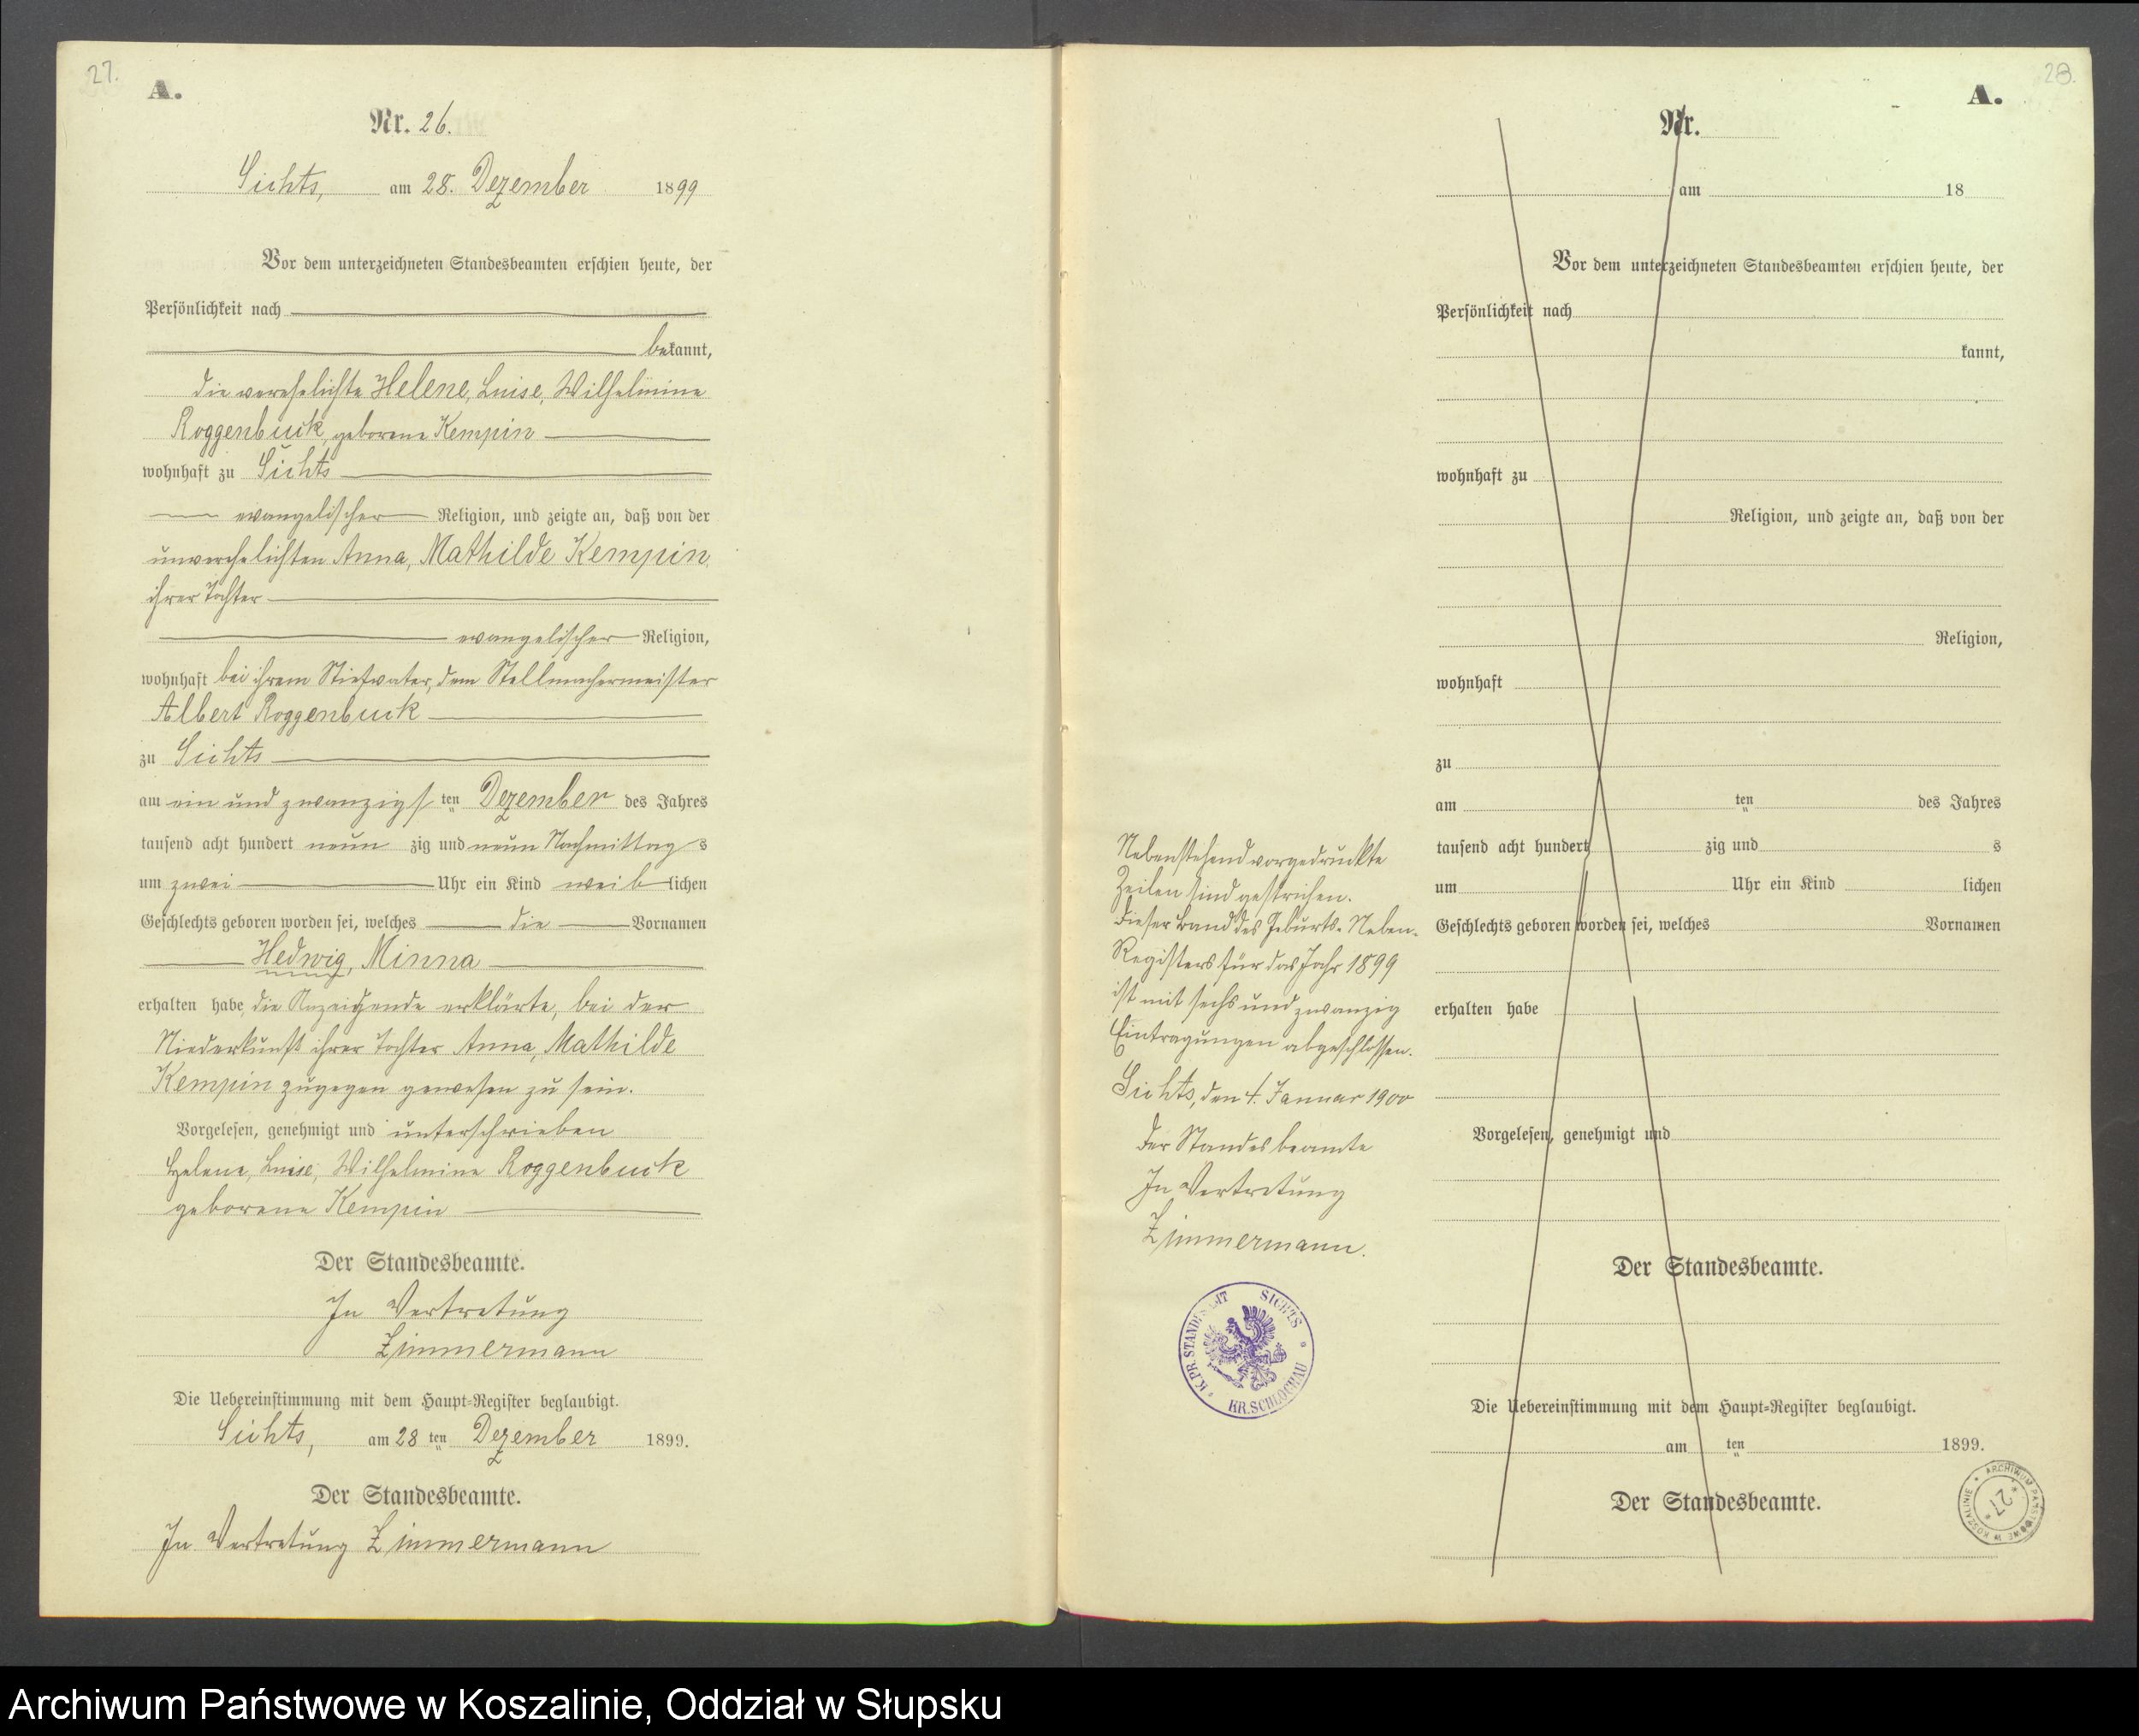 27.
A.
Nr. 26.
Sichts, am 28. Dezember 1899
Vor dem unterzeichneten Standesbeamten erschien heute, der
Persönlichkeit nach
bekannt,
die verehelichte Helene, Luise, Wilhelmine
Roggenbuck, geborene Kempin
wohnhaft zu Sichts
evangelischer Religion, und zeigte an, daß von der
unverehelichten Anna, Mathilde Kempin,
ihrer Tochter
evangelischer Religion,
wohnhaft bei ihrem Stiefvater, dem Stellmachermeister
Albert Roggenbuck
zu Sichts
am ein und zwanzigsten Dezember des Jahres
tausend acht hundert neun zig und neun Nachmittags
um zwei Uhr ein Kind weiblichen
Geschlechts geboren worden sei, welches die Vornamen
Hedwig, Minna
erhalten habe, die Anzeigende erklärte, bei der
Niederkunft ihrer Tochter Anna, Mathilde
Kempin zugegen gewesen zu sein.
Vorgelesen, genehmigt und unterschrieben
Helene, Luise, Wilhelmine Roggenbuck
geborene Kempin
Der Standesbeamte.
In Vertretung
Zimmermann
Die Uebereinstimmung mit dem Haupt-Register beglaubigt.
Sichts, am 28 ten Dezember 1899.
Der Standesbeamte.
In Vertretung Zimmermann
28.
A.
Nr.
am 18
Vor dem unterzeichneten Standesbeamten erschien heute, der
Persönlichkeit nach
kannt,
wohnhaft zu
Religion, und zeigte an, daß von der
Religion,
wohnhaft
zu
am ten des Jahres
tausend acht hundert zig und s
um Uhr ein Kind lichen
Geschlechts geboren worden sei, welches Vornamen
erhalten habe
Vorgelesen, genehmigt und
Der Standesbeamte.
Die Uebereinstimmung mit dem Haupt-Register beglaubigt.
am ten 1899.
Der Standesbeamte.
Nebenstehend vorgedruckte
Zeilen sind gestrichen.
Dieser Band des Geburts-Neben-
Registers für das Jahr 1899
ist mit sechs und zwanzig
Eintragungen abgeschlossen.
Sichts, den 4. Januar 1900
Der Standesbeamte
In Vertretung
Zimmermann.
K.PR.STANDESAMT SICHTS
KR.SCHLOCHAU
ARCHIWUM PAŃSTWOWE W KOSZALINIE
27
Archiwum Państwowe w Koszalinie, Oddział w Słupsku